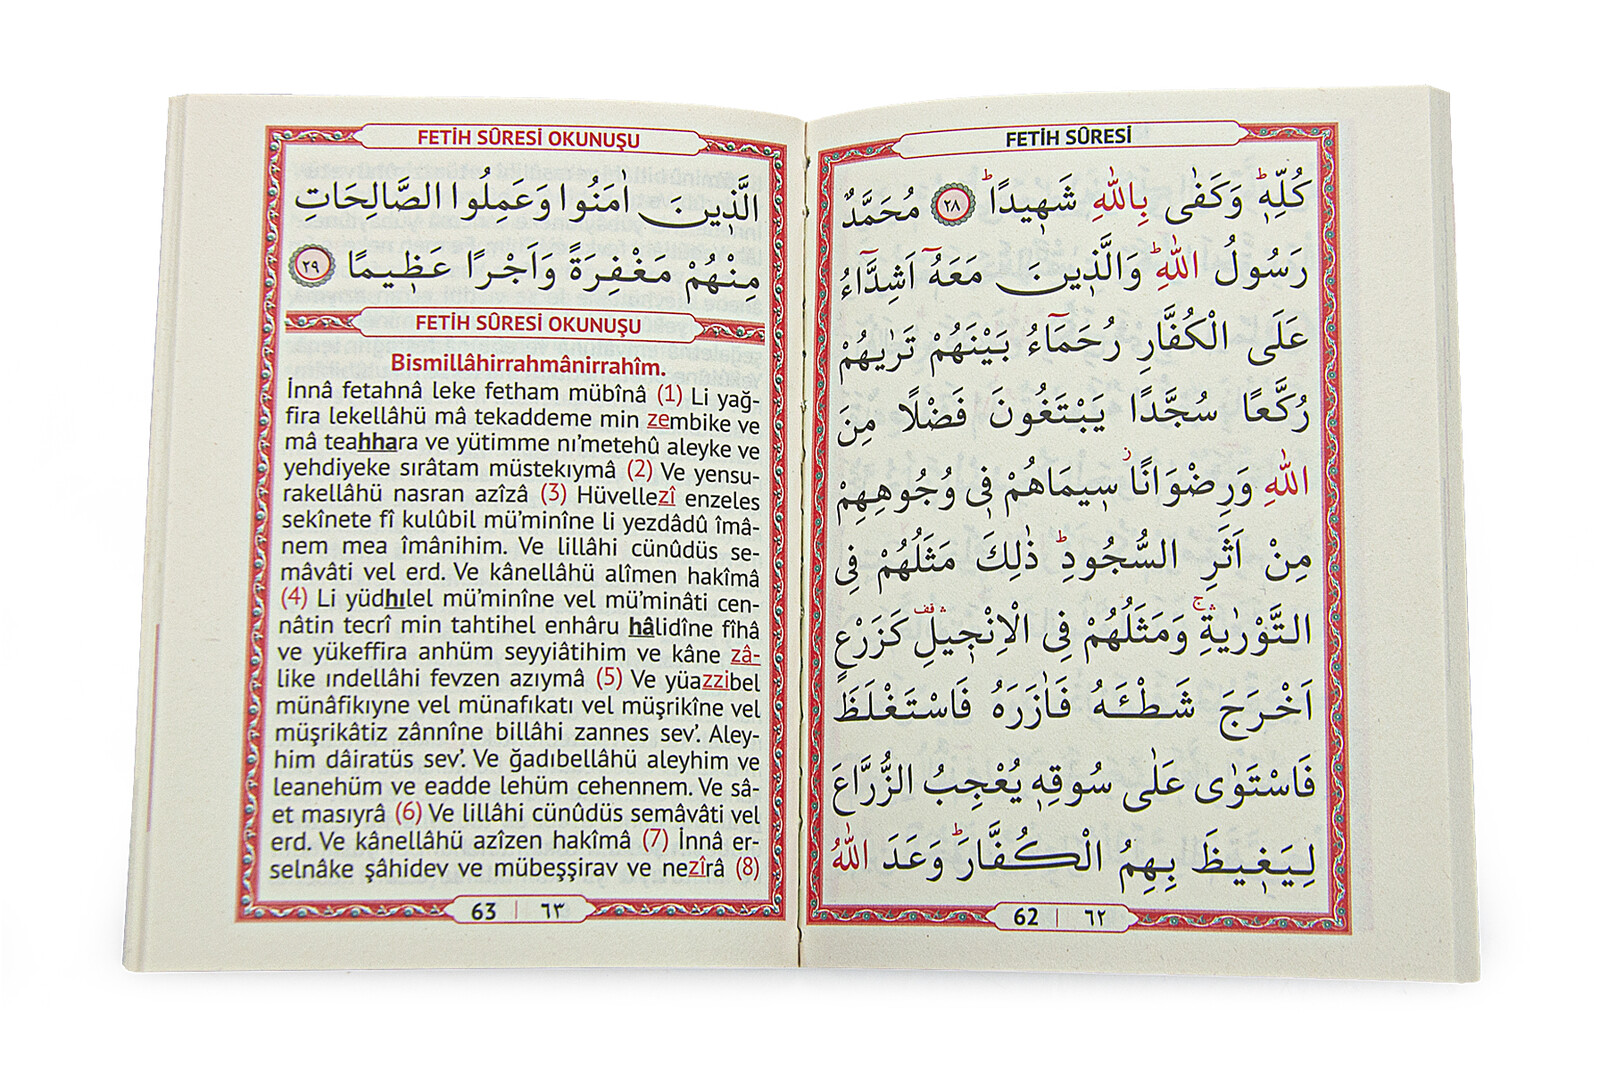 FETİH SÛRESİ
كُلِّه۪ۜ وَكَفٰى بِاللّٰهِ شَه۪يدًاۜ ﴿٢٨﴾ مُحَمَّدٌ
رَسُولُ اللّٰهِۜ وَالَّذ۪ينَ مَعَهُٓ اَشِدَّٓاءُ
عَلَى الْكُفَّارِ رُحَمَٓاءُ بَيْنَهُمْ تَرٰيهُمْ
رُكَّعًا سُجَّدًا يَبْتَغُونَ فَضْلًا مِنَ
اللّٰهِ وَرِضْوَانًاۘ س۪يمَاهُمْ ف۪ي وُجُوهِهِمْ
مِنْ اَثَرِ السُّجُودِۜ ذٰلِكَ مَثَلُهُمْ فِي
التَّوْرٰيةِۚۛ وَمَثَلُهُمْ فِي الْاِنْج۪يلِ۠ۛ كَزَرْعٍ
اَخْرَجَ شَطْـَٔهُ فَاٰزَرَهُ فَاسْتَغْلَظَ
فَاسْتَوٰى عَلٰى سُوقِه۪ يُعْجِبُ الزُّرَّاعَ
لِيَغ۪يظَ بِهِمُ الْكُفَّارَۜ وَعَدَ اللّٰهُ
62 | ٦٢
FETİH SÛRESİ OKUNUŞU
الَّذ۪ينَ اٰمَنُوا وَعَمِلُوا الصَّالِحَاتِ
مِنْهُمْ مَغْفِرَةً وَاَجْرًا عَظ۪يمًا ﴿٢٩﴾
FETİH SÛRESİ OKUNUŞU
Bismillâhirrahmânirrahîm.
İnnâ fetahnâ leke fetham mübînâ (1) Li yağ-
fira lekellâhü mâ tekaddeme min zembike ve
mâ teahhara ve yütimme nı’metehû aleyke ve
yehdiyeke sırâtam müstekıymâ (2) Ve yensu-
rakellâhü nasran azîzâ (3) Hüvellezî enzeles
sekînete fî kulûbil mü’minîne li yezdâdû îmâ-
nem mea îmânihim. Ve lillâhi cünûdüs se-
mâvâti vel erd. Ve kânellâhü alîmen hakîmâ
(4) Li yüdhılel mü’minîne vel mü’minâti cen-
nâtin tecrî min tahtihel enhâru hâlidîne fîhâ
ve yükeffira anhüm seyyiâtihim ve kâne zâ-
like ındellâhi fevzen azıymâ (5) Ve yüazzibel
münâfikıyne vel münafıkatı vel müşrikîne vel
müşrikâtiz zânnîne billâhi zannes sev’. Aley-
him dâiratüs sev’. Ve ğadıbellâhü aleyhim ve
leanehüm ve eadde lehüm cehennem. Ve sâ-
et masıyrâ (6) Ve lillâhi cünûdüs semâvâti vel
erd. Ve kânellâhü azîzen hakîmâ (7) İnnâ er-
selnâke şâhidev ve mübeşşirav ve nezîrâ (8)
63 | ٦٣